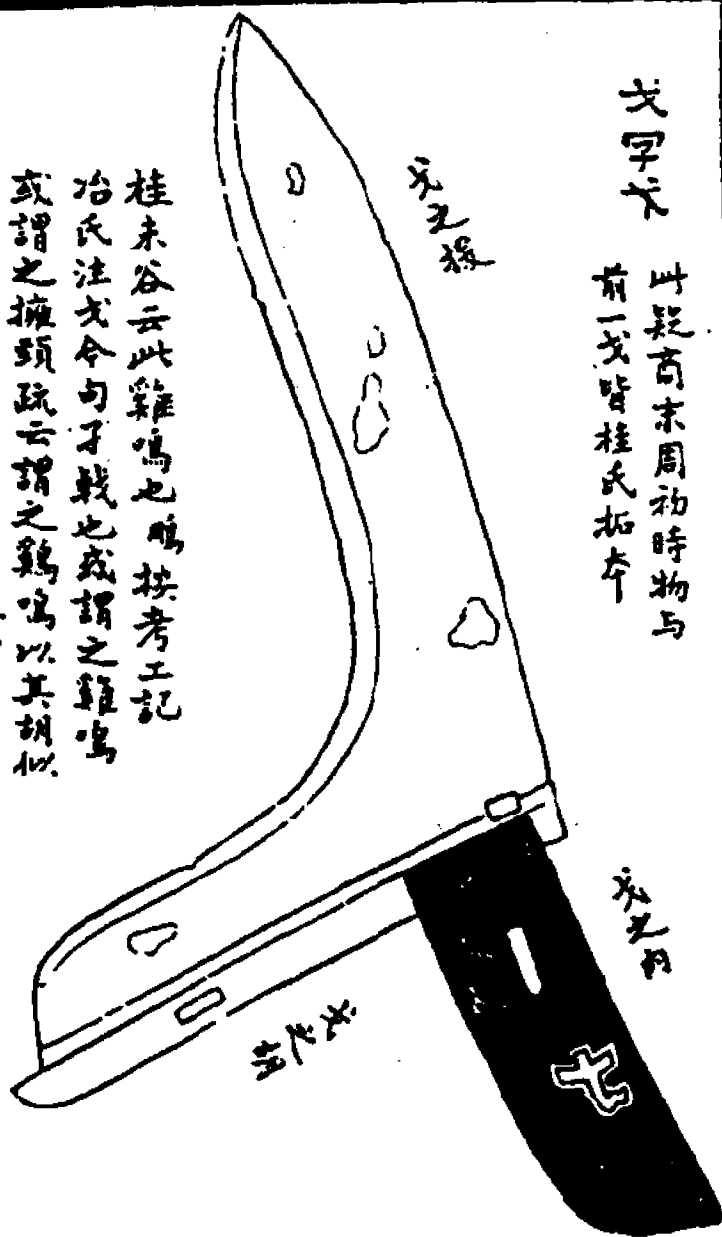 戈字戈
此疑商末周初時物与
前一戈皆桂氏拓本
戈之援
戈之內
戈之胡
桂未谷云此雞鳴也鵬按考工記
冶氏注戈今句孑戟也或謂之雞鳴
或謂之擁頸疏云謂之鷄鳴以其胡似